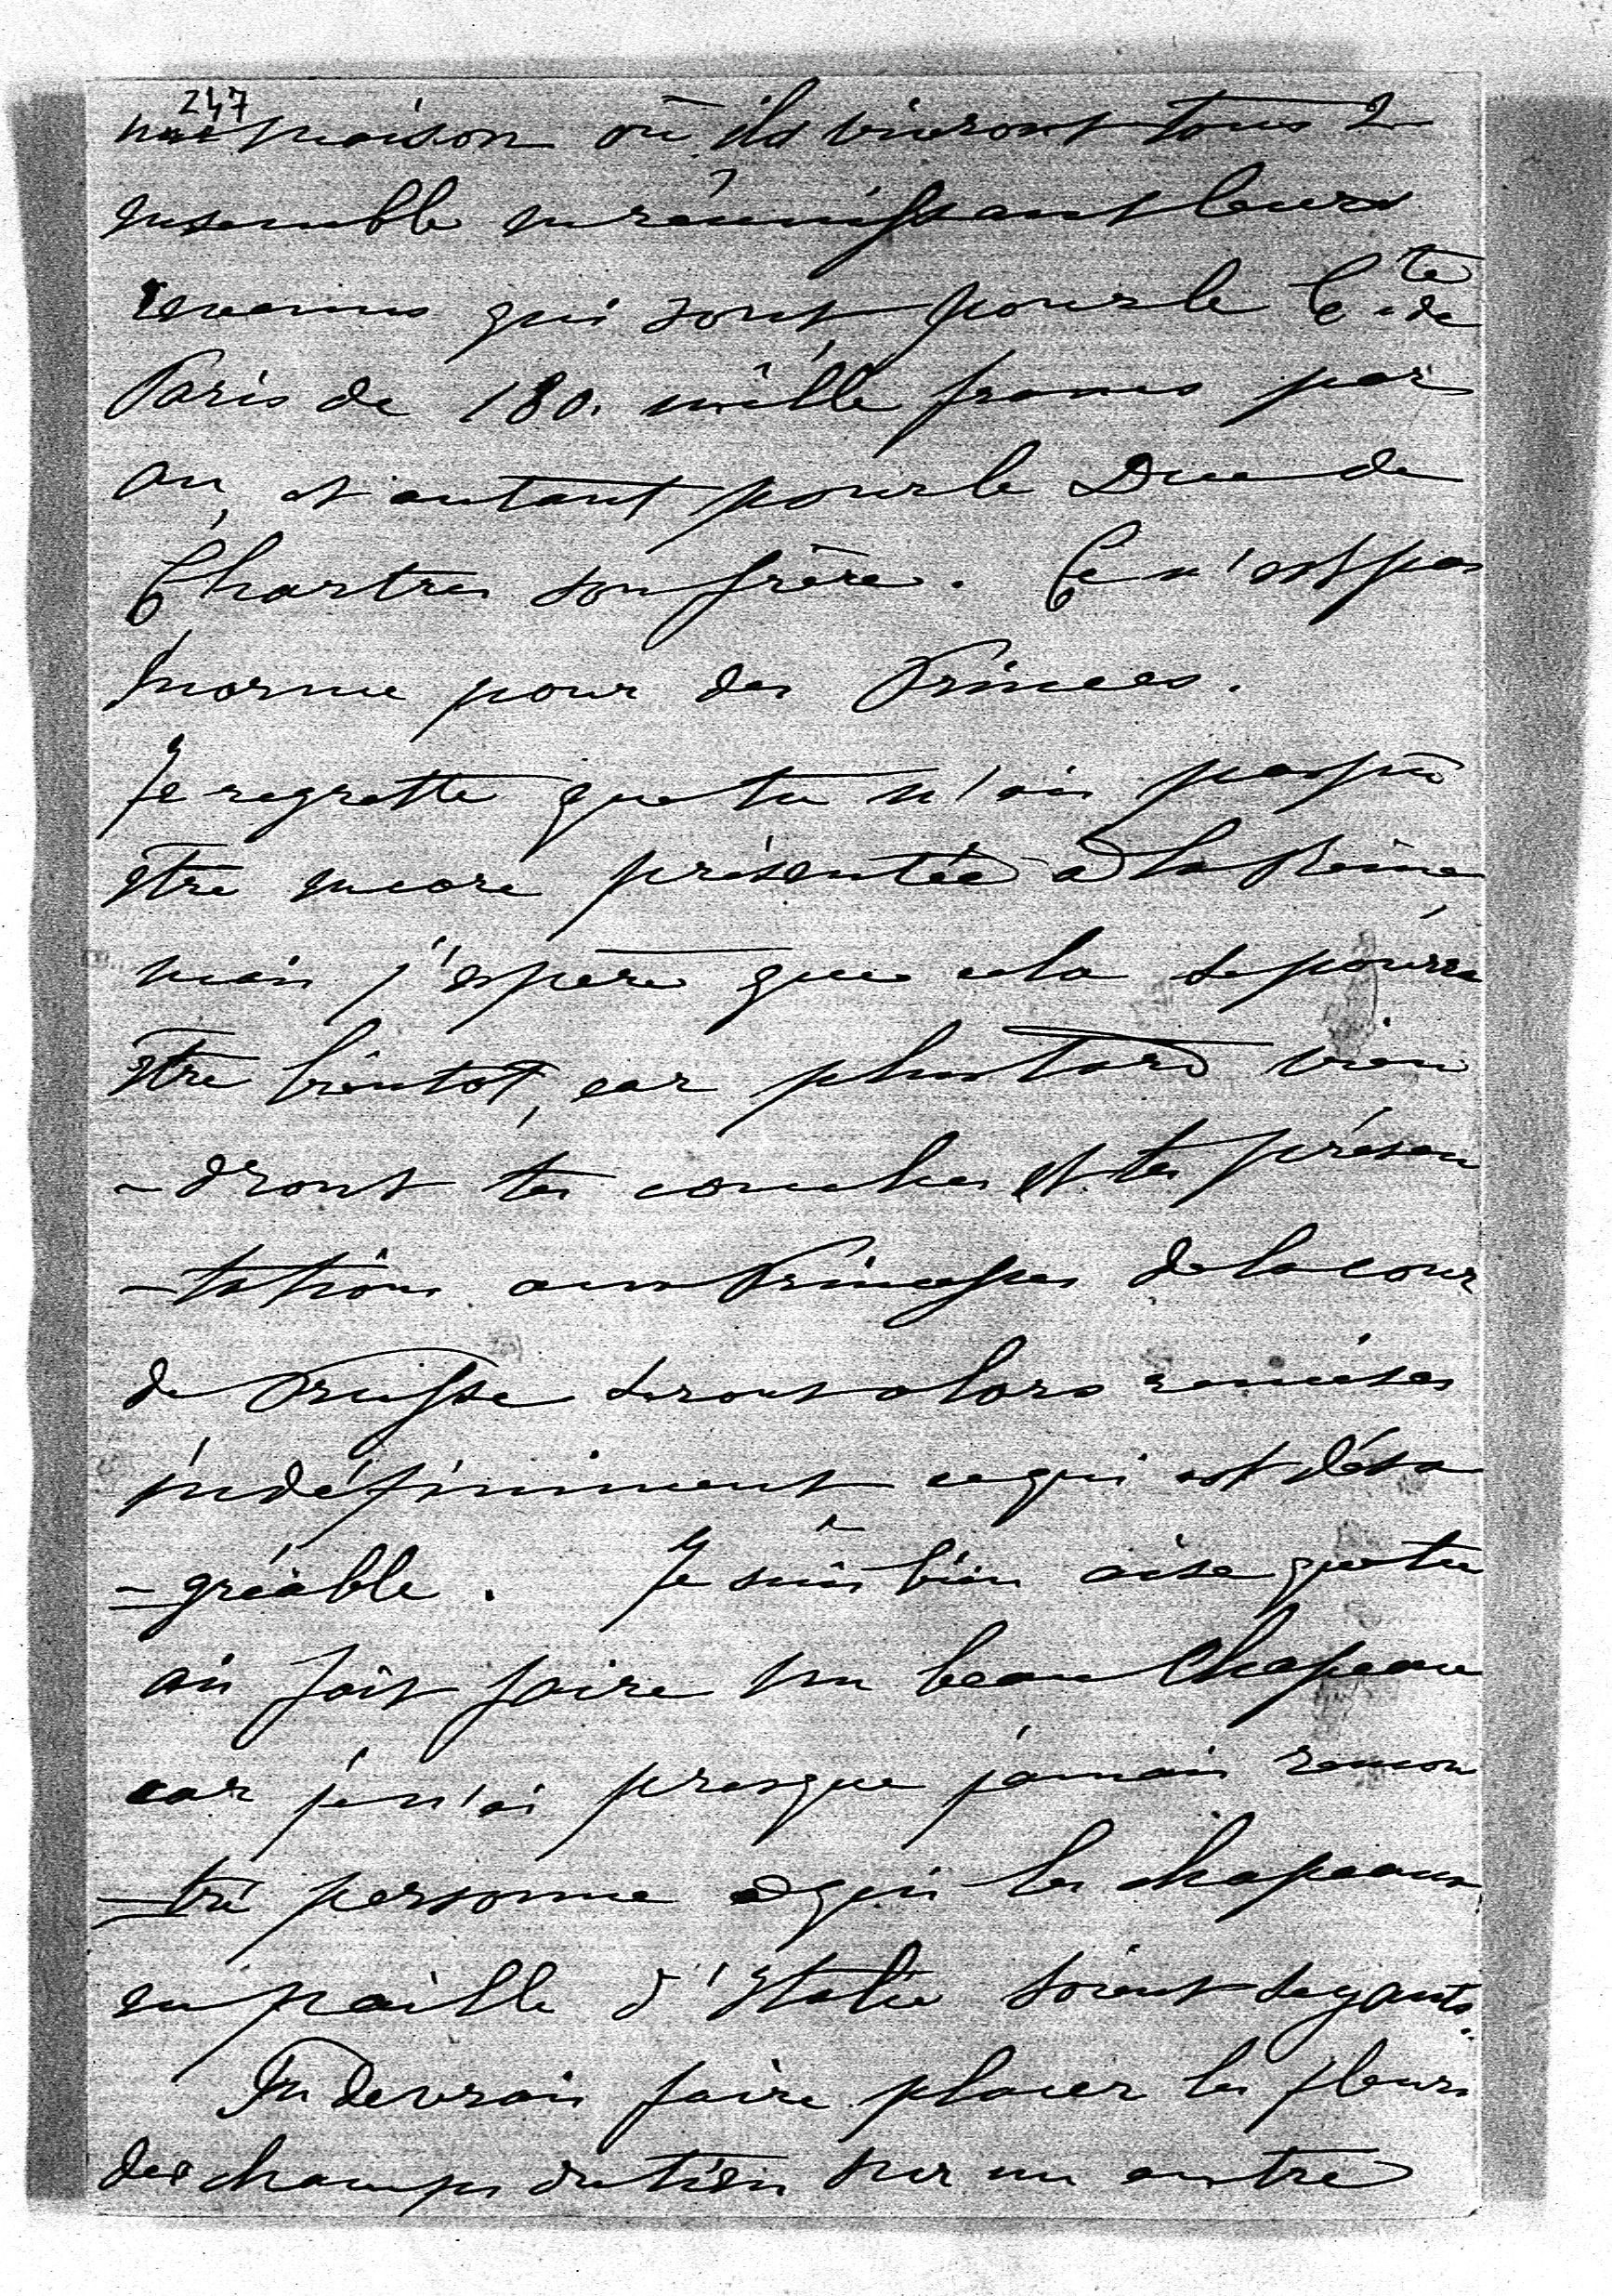 247
une maison où ils vivront tous 2
ensemble en réunissant leurs
revenus qui sont pour le Cte de
Paris de 180. mille francs par
an, et autant pour le Duc de
Chartres son frère. Ce n'est pas
énorme pour des Princes.
Je regrette que tu n'ais pas pu
être encore présentée à la Reine
mais j'espère que cela se pourra
être bientôt, car plus tard vien
-dront tes couches et tes présen
-tations aux Princesses de la cour
de Prusse seront alors remises
indéfiniment ce qui est désa
-gréable. Je suis bien aise que tu
ais fait faire un beau chapeau
car je n'ai presque jamais rencon
-tré personne à qui les chapeaux
en paille d'Italie soient seyants.
Tu devrais faire placer les fleurs
des champs du tien sur un autre